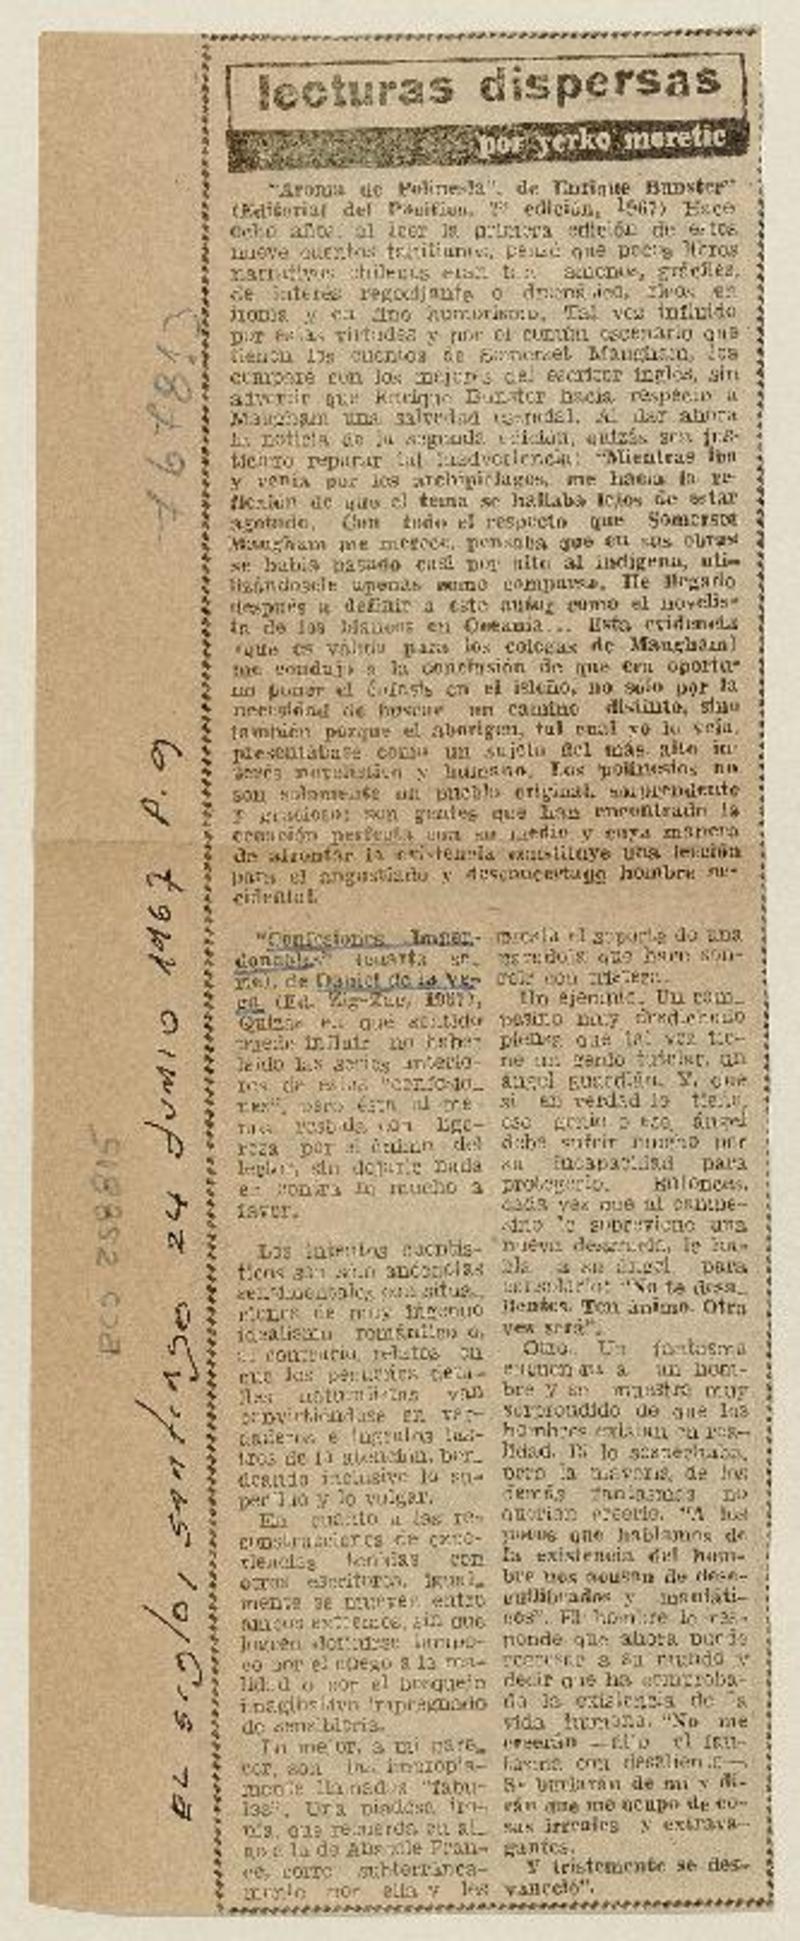 lecturas dispersas
por yerko moretic
"Aroma de Polinesia", de Enrique Bunster"
(Editorial del Pacífico, 2ª edición, 1967) Hace
ocho años, al leer la primera edición de estos
nueve cuentos tahitianos, pensé que pocos libros
narrativos chilenos eran tan amenos, gráciles,
de interés regocijante o dramático, ricos en
ironía y en fino humorismo. Tal vez influido
por estas virtudes y por el común escenario que
tienen los cuentos de Somerset Maugham, los
comparé con los mejores del escritor inglés, sin
advertir que Enrique Bunster hacía respecto a
Maugham una salvedad esencial. Al dar ahora
la noticia de la segunda edición, quizás sea jus-
ticiero reparar tal inadvertencia: "Mientras iba
y venía por los archipiélagos, me hacía la re-
flexión de que el tema se hallaba lejos de estar
agotado. Con todo el respeto que Somerset
Maugham me merece, pensaba que en sus obras
se había pasado casi por alto al indígena, uti-
lizándosele apenas como comparsa. He llegado
después a definir a este autor como el novelis-
ta de los blancos en Oceanía... Esta evidencia
(que es válida para los colegas de Maugham)
me condujo a la conclusión de que era oportu-
no poner el énfasis en el isleño, no sólo por la
necesidad de buscar un camino distinto, sino
también porque el aborigen, tal cual yo lo veía,
presentábase como un sujeto del más alto in-
terés novelístico y humano. Los polinesios no
son solamente un pueblo original, sorprendente
y gracioso; son gentes que han encontrado la
ecuación perfecta con su medio y cuya manera
de afrontar la existencia constituye una lección
para el angustiado y desconcertado hombre oc-
cidental.
"Confesiones Imper-
donables" (cuarta se-
rie), de Daniel de la Ve-
ga (Ed. Zig-Zag, 1967),
Quizás en qué sentido
puede influir no haber
leído las series anterio-
res de estas "confesio-
nes", pero ésta al me-
nos resbala con lige-
reza por el ánimo del
lector, sin dejarle nada
en contra ni mucho a
favor.
Los intentos cuentís-
ticos son sólo anécdotas
sentimentales con situa-
ciones de muy ingenuo
idealismo romántico o,
al contrario, relatos en
que los pequeños deta-
lles naturalistas van
convirtiéndose en ver-
daderos e ingratos las-
tros de la atención, bor-
deando inclusive lo su-
perfluo y lo vulgar.
En cuanto a las re-
construcciones de expe-
riencias tenidas con
otros escritores, igual-
mente se mueven entre
ambos extremos, sin que
logren definirse tampo-
co por el apego a la rea-
lidad o por el bosquejo
imaginativo impregnado
de sensiblería.
Lo mejor, a mi pare-
cer, son las impropia-
mente llamadas "fábu-
las". Una piadosa iro-
nía, que recuerda en al-
go a la de Anatole Fran-
ce, corre subterránea-
mente por ella y les
presta el soporte de una
paradoja que hace son-
reír con tristeza.
Un ejemplo. Un cam-
pesino muy desdichado
piensa que tal vez tie-
ne un genio tutelar, un
ángel guardián. Y, que
si en verdad lo tiene,
ese genio o ese ángel
debe sufrir mucho por
su incapacidad para
protegerlo. Entonces,
cada vez que al campe-
sino le sobreviene una
nueva desgracia, le ha-
bla a su ángel para
consolarlo: "No te desa-
lientes. Ten ánimo. Otra
vez será".
Otro. Un fantasma
encuentra a un hom-
bre y se muestra muy
sorprendido de que los
hombres existan en rea-
lidad. El lo sospechaba,
pero la mayoría de los
demás fantasmas no
querían creerlo. "A los
pocos que hablamos de
la existencia del hom-
bre nos acusan de dese-
quilibrados y maniáti-
cos". El hombre le res-
ponde que ahora puede
regresar a su mundo y
decir que ha comproba-
do la existencia de la
vida humana. "No me
creerán —dijo el fan-
tasma con desaliento—.
Se burlarán de mí y di-
rán que me ocupo de co-
sas irreales y extrava-
gantes.
Y tristemente se des-
vaneció".
EL siglo, Santiago 24 Junio 1967 P. 9